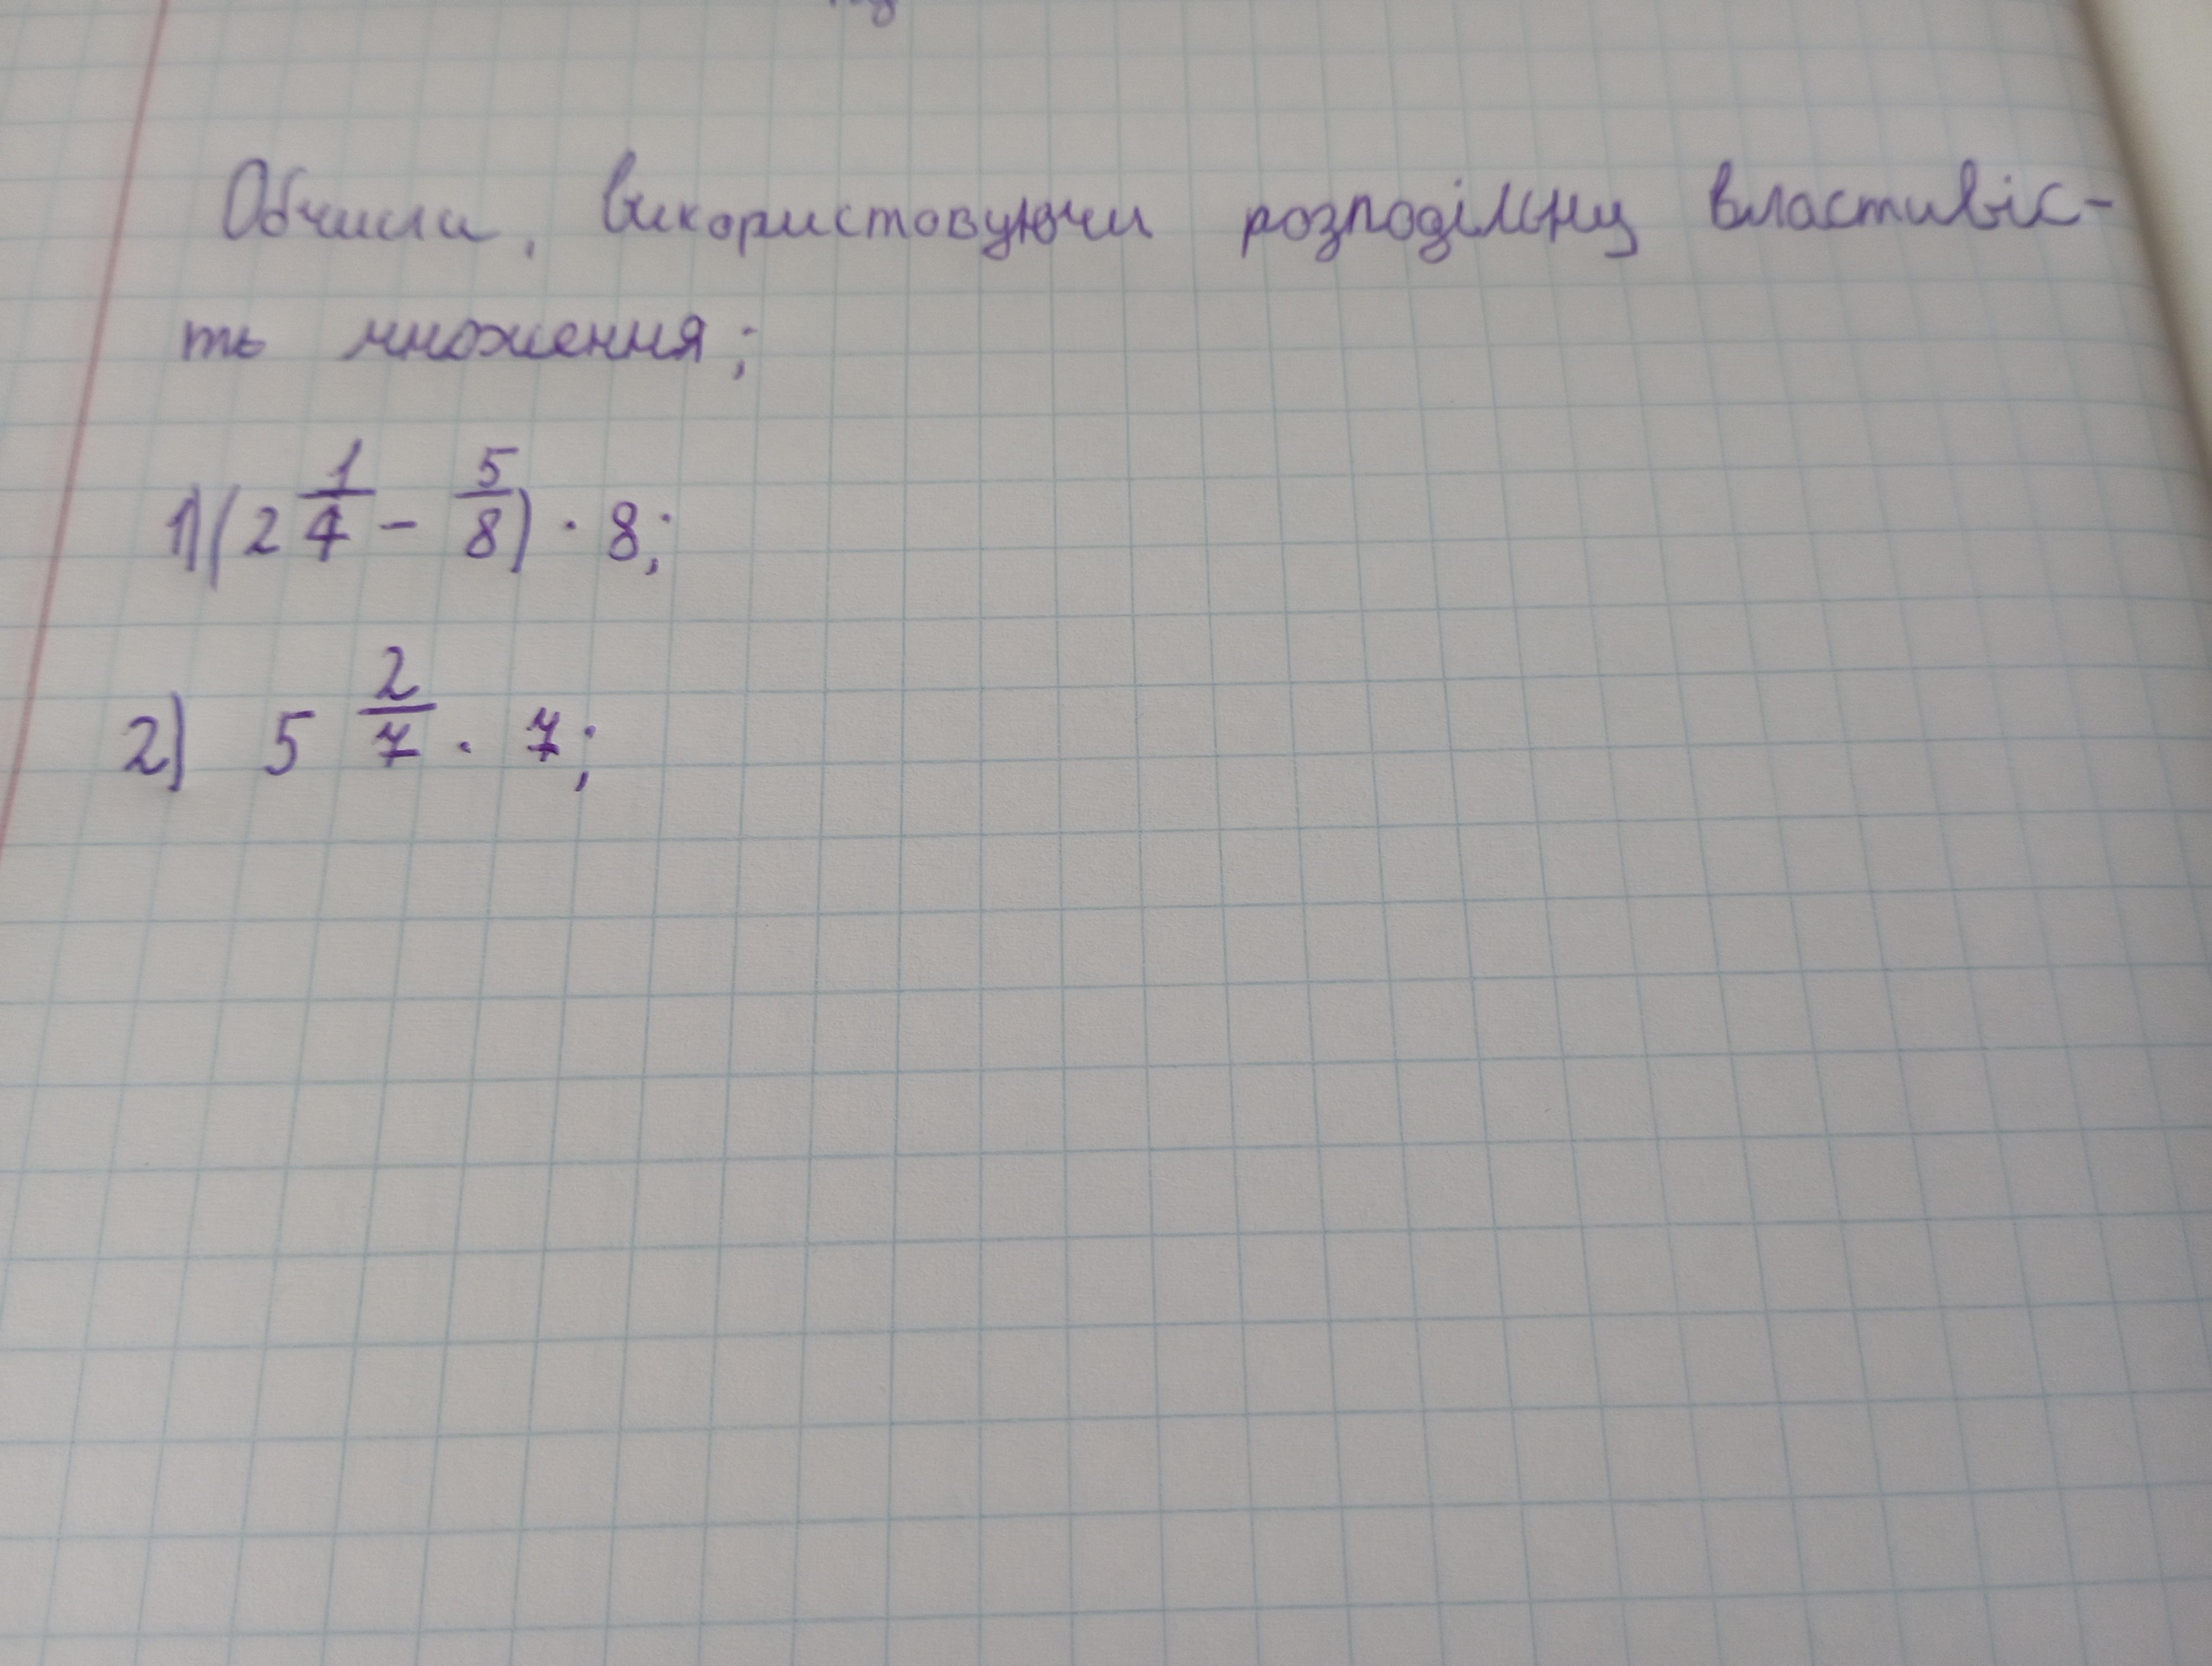 Обчисли, використовуючи розподільну властивіс-
ть множення;
1) (2 1/4 - 5/8) · 8;
2) 5 2/7 · 7;